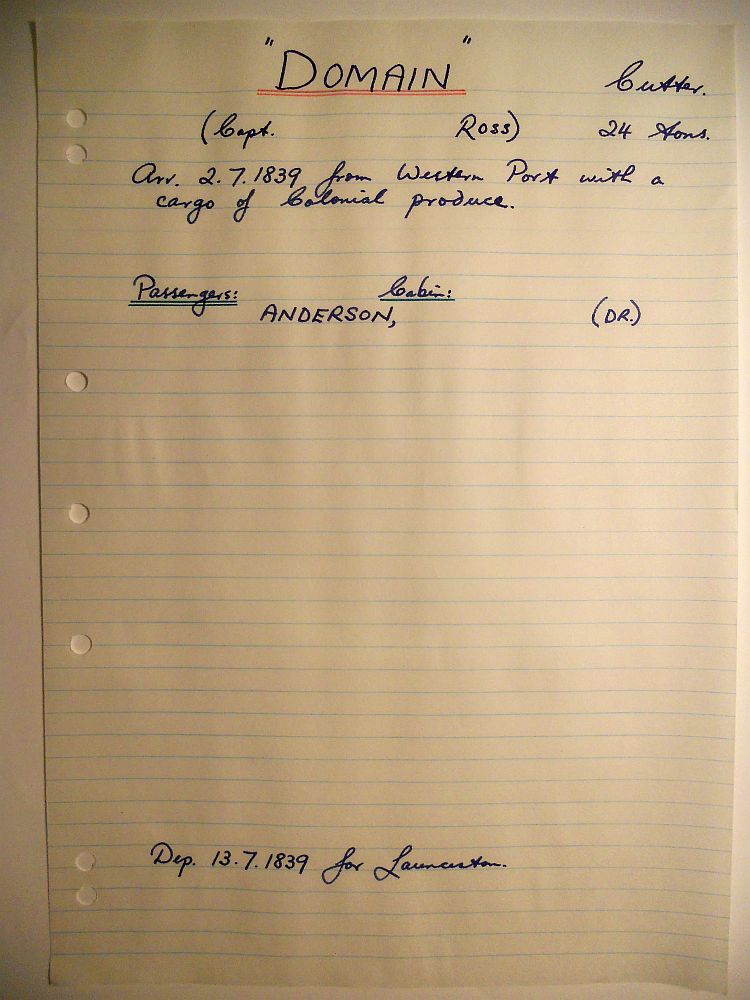 "DOMAIN" Cutter.
(Capt. Ross) 24 tons.
Arr. 2.7.1839 from Western Port with a
cargo of Colonial produce.
Passengers: Cabin:
ANDERSON, (DR.)
Dep. 13.7.1839 for Launceston.